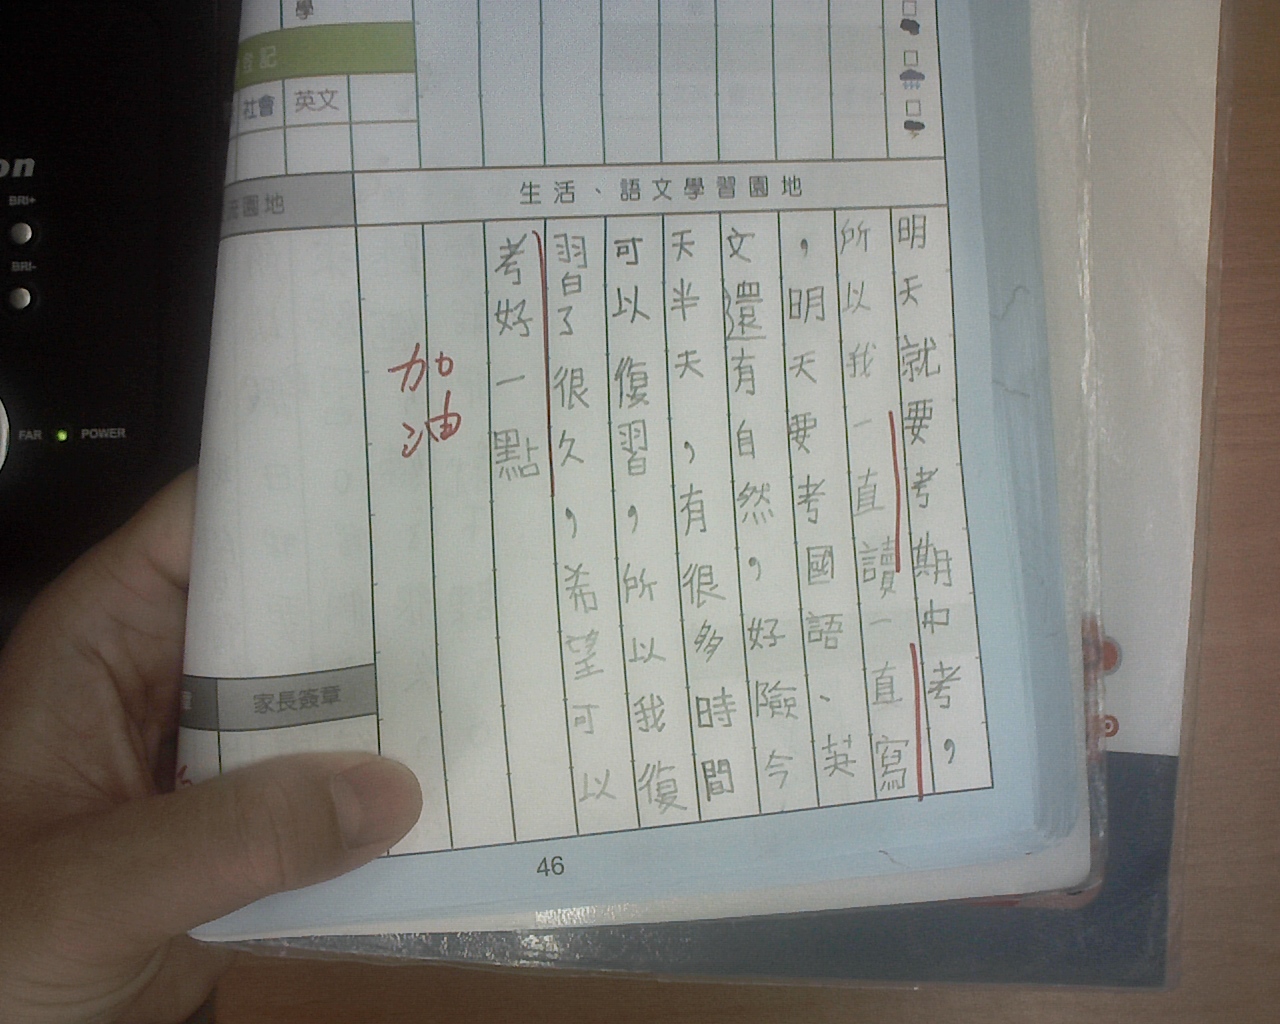 學
登記
社會 英文
園地
生活、語文學習園地
明天就要考期中考，
所以我一直讀一直寫
，明天要考國語、英
文還有自然，好險今
天半天，有很多時間
可以復習，所以我復
習了很久，希望可以
考好一點
加油
家長簽章
46
on
BRI+
BRI-
FAR
POWER